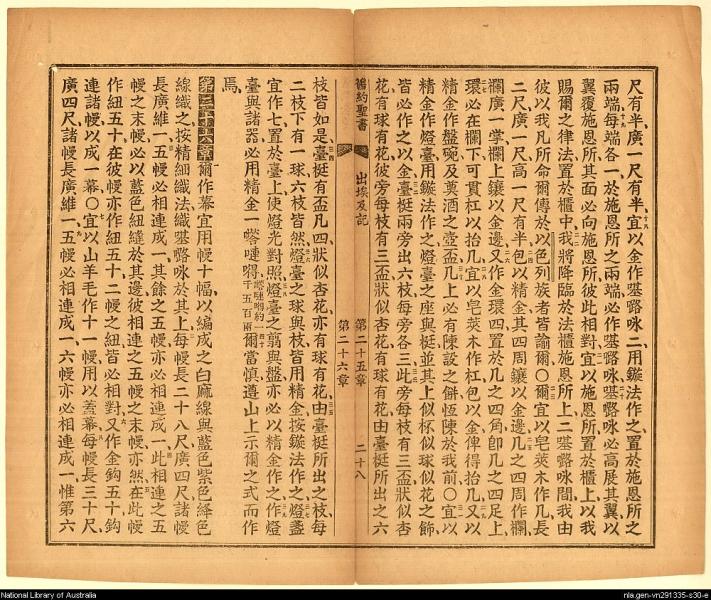 尺有半廣一尺有半宜以金作基嚕咏二用鏇法作之置於施恩所之
兩端每端各一於施恩所之兩端必作基嚕咏基嚕咏必高展其翼以
翼覆施恩所其面必向施恩所彼此相對宜以施恩所置於櫃上以我
賜爾之律法置於櫃中我將降臨於法櫃施恩所上二基嚕咏間我由
彼以我凡所命爾傳於以色列族者皆諭爾○爾宜以皂莢木作几長
二尺廣一尺高一尺有半包以精金其四周鑲以金邊几之四周作欄
欄廣一掌欄上鑲以金邊又作金環四置於几之四角卽几之四足上
環必在欄下可貫杠以抬几宜以皂莢木作杠包以金俾得抬几又以
精金作盤碗及奠酒之壺盃几上必有陳設之餅恆陳於我前○宜以
精金作燈臺用鏇法作之燈臺之座與梃並其上似杯似球似花之飾
皆必作之以金臺梃兩旁出六枝每旁各三此旁每枝有三盃狀似杏
花有球有花彼旁每枝有三盃狀似杏花有球有花由臺梃所出之六
舊約聖書
出埃及記
第二十五章
第二十六章
二十八
枝皆如是臺梃有盃凡四狀似杏花亦有球有花由臺梃所出之枝每
二枝下有一球六枝皆然燈臺之球與枝皆用精金按鏇法作之燈盞
宜作七置於臺上使燈光對照燈臺之翦與盤亦必以精金作之作燈
臺與諸器必用精金一嗒嗹嘚爾當慎遵山上示爾之式而作
焉
第二十六章爾作幕宜用幔十幅以編成之白麻線與藍色紫色絳色
線織之按精細織法織基嚕咏於其上每幔長二十八尺廣四尺諸幔
長廣維一五幔必相連成一其餘之五幔亦必相連成一此相連之五
幔之末幔必以藍色紐縫於其邊彼相連之五幔之末幔亦然在此幔
作紐五十在彼幔亦作紐五十二幔之紐皆必相對又作金鈎五十鈎
連諸幔以成一幕○宜以山羊毛作十一幔用以蓋幕每幔長三十尺
廣四尺諸幔長廣維一五幔必相連成一六幔亦必相連成一惟第六
National Library of Australia
nla.gen-vn291335-s30-e